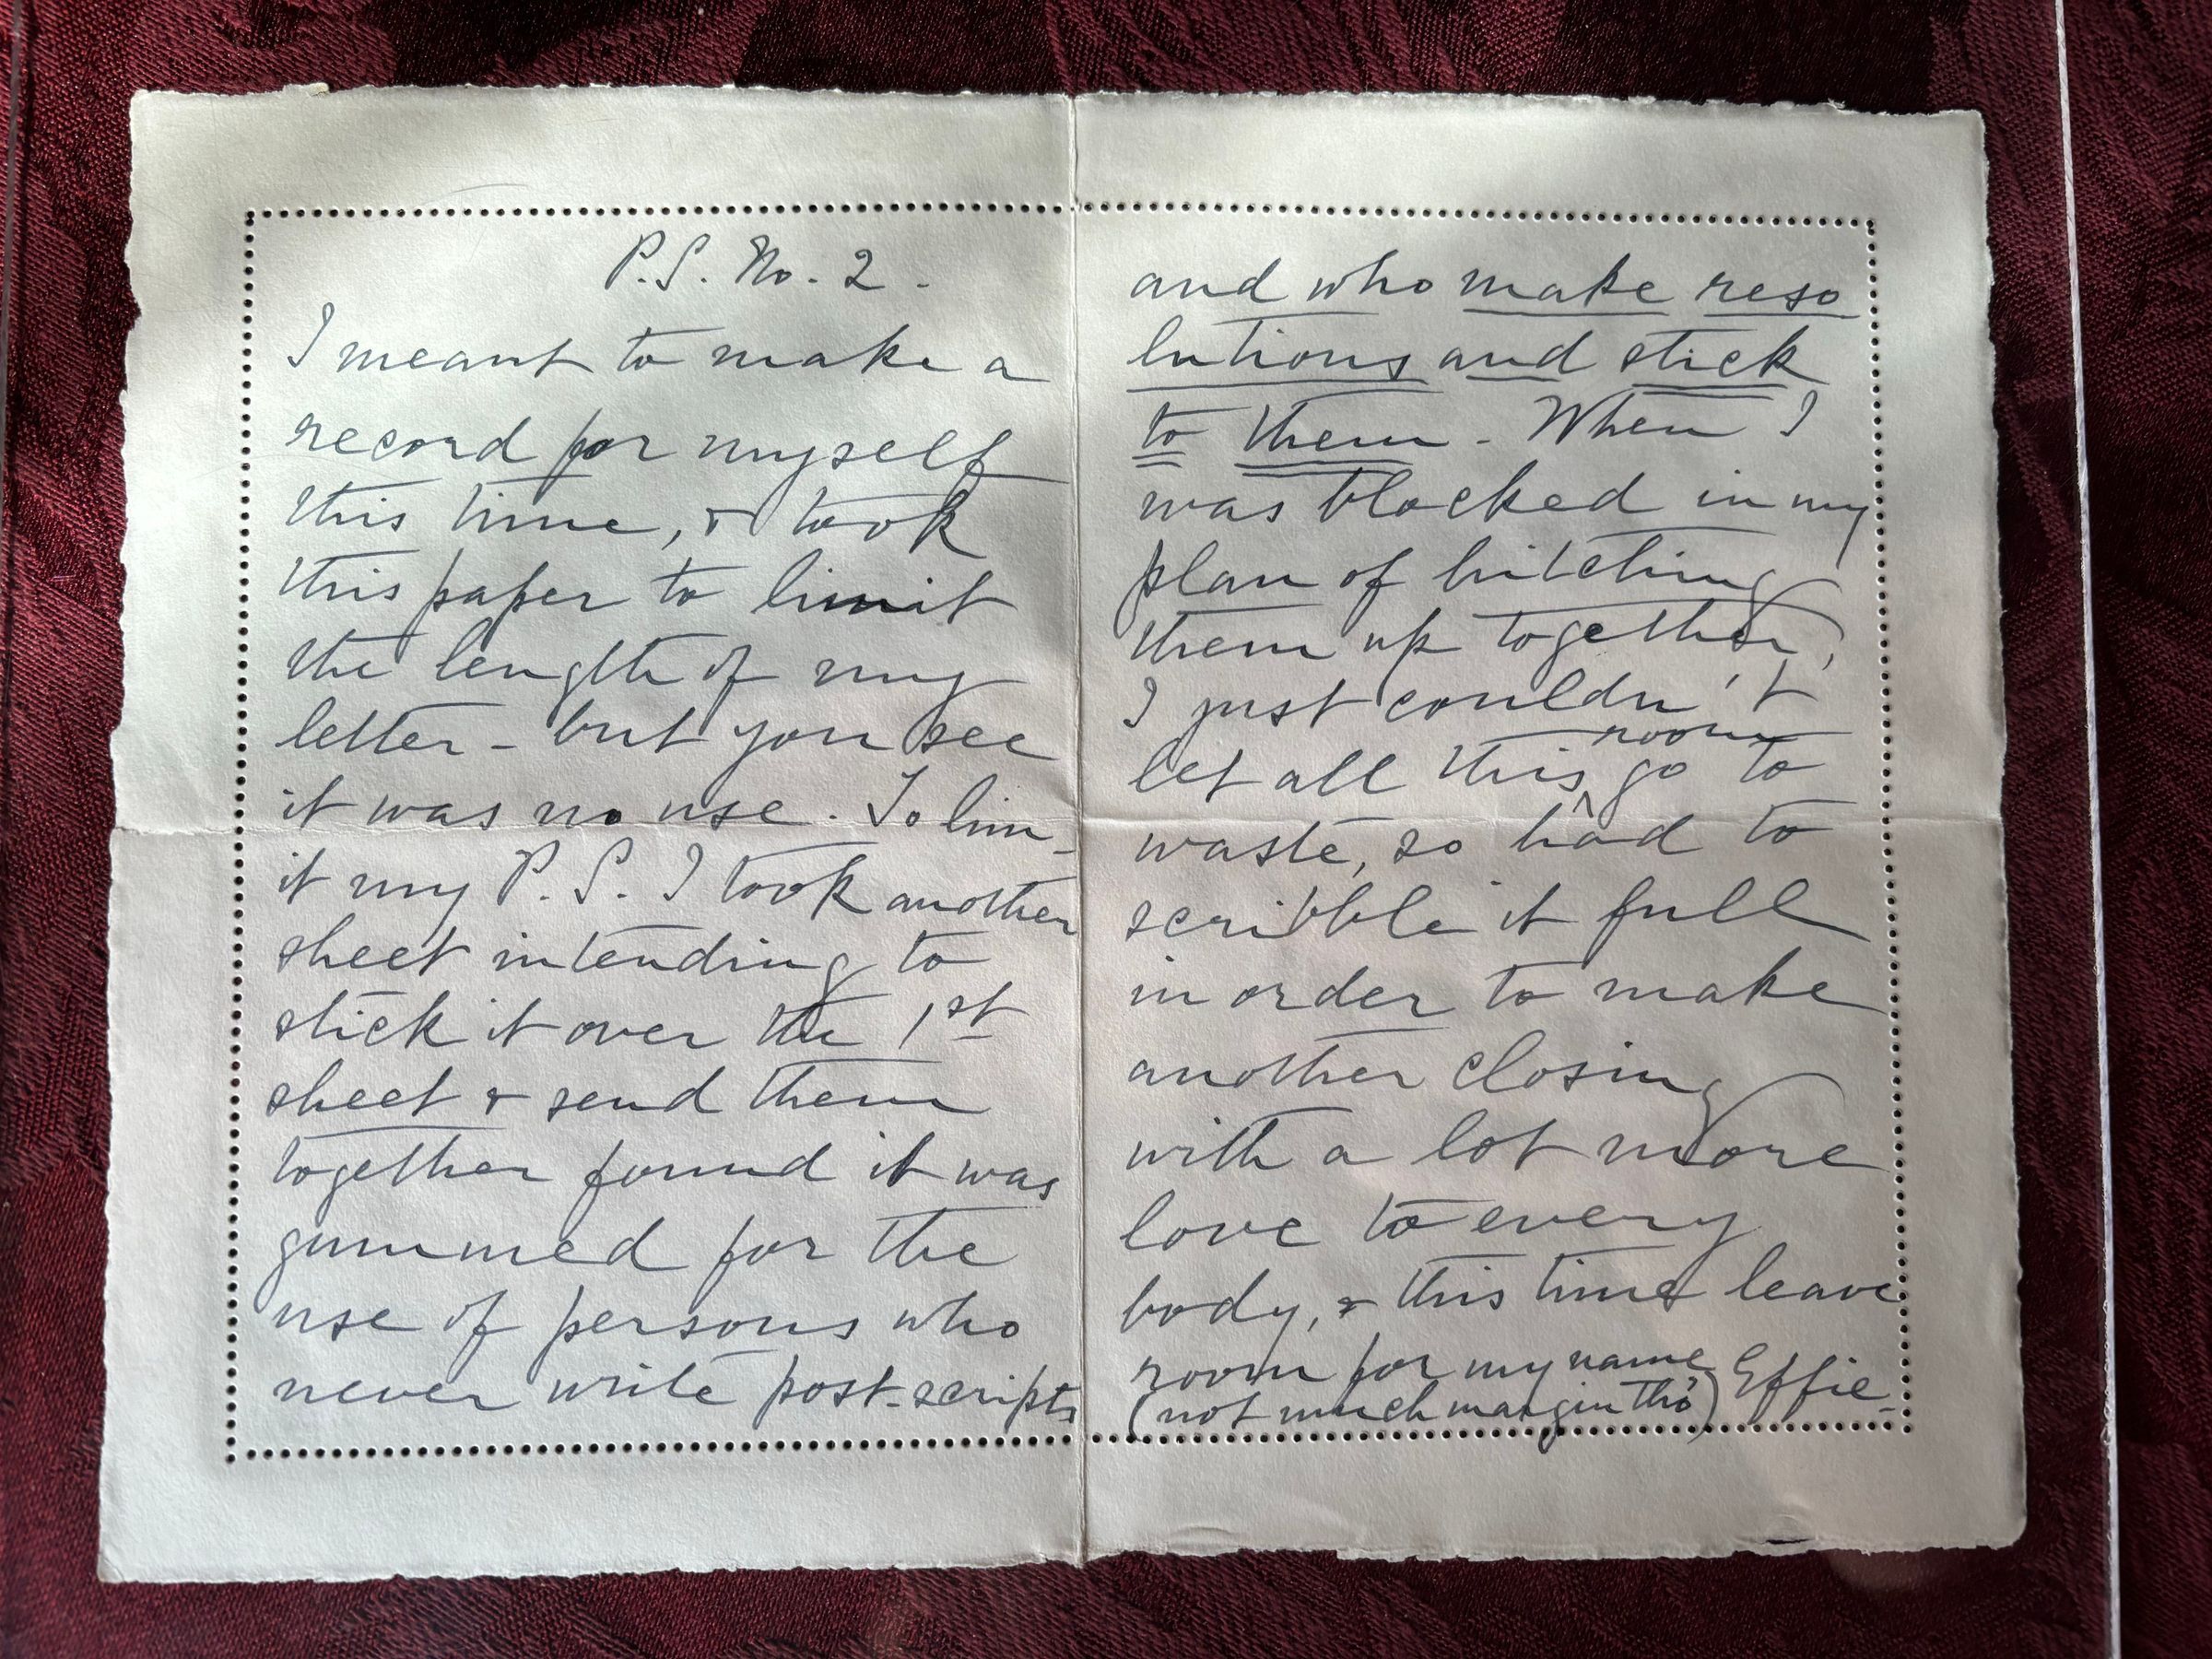 P.S. No. 2.
I meant to make a
record for myself
this time, & took
this paper to limit
the length of my
letter - but you see
it was no use. To lim-
it my P.S. I took another
sheet intending to
stick it over the 1st
sheet & send them
together found it was
gummed for the
use of persons who
never write post-scripts
and who make reso
lutions and stick
to them. When I
was blocked in my
plan of hitching
them up together,
I just couldn't
let all this room go to
waste, so had to
scribble it full
in order to make
another closing
with a lot more
love to every
body, & this time leave
room for my name Effie-
(not much margin tho')